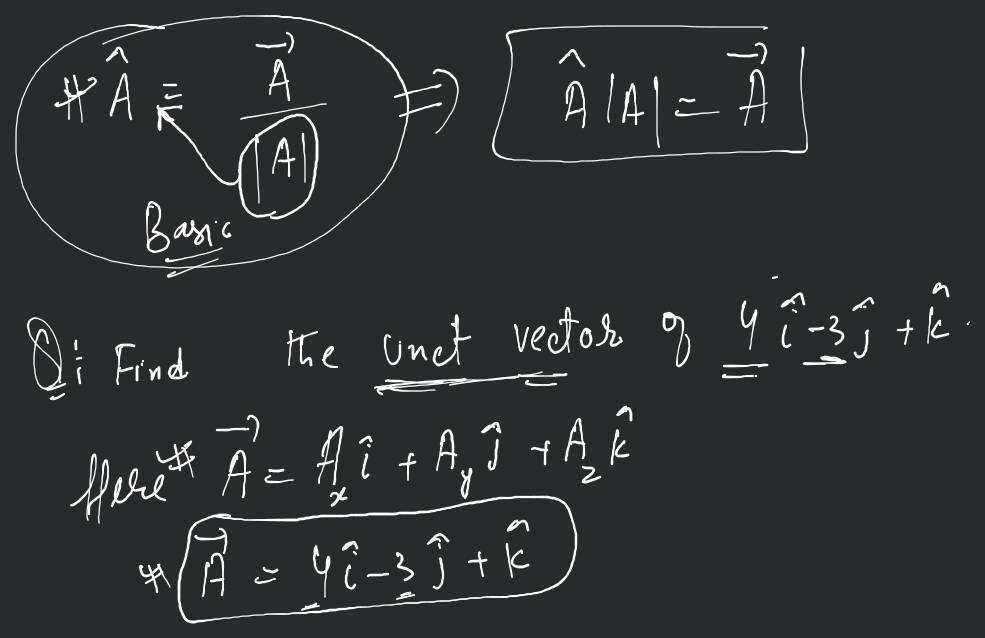 # Â = A⃗ / |A| ⇒ Â |A| = A⃗
Basic
Q: Find the unct vector of 4î - 3ĵ + k̂.
Here # A⃗ = Aₓ î + A_y ĵ + A_z k̂
# A⃗ = 4î - 3ĵ + k̂